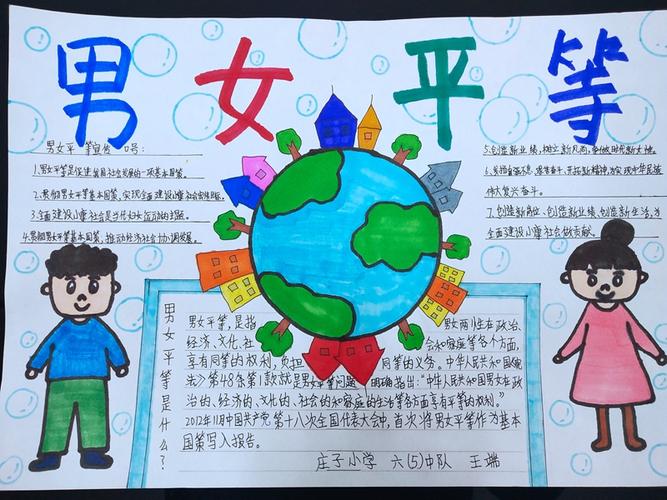 男女平等
男女平等宣传口号:
1.男女平等是促进我国社会发展的一项基本国策。
2.贯彻男女平等基本国策,实现全面建设小康社会
3.全面建设小康社会是当代妇女运动的主题。
4.贯彻男女平等基本国策,推动经济社会协调发展。
5.创造新业绩,树立新风尚,争做时代新女性。
伟大复兴奋斗。
7.创造新岗位、创造新业绩、创造新生活,为
全面建设小康社会做贡献。
男女平等是什么?
男女平等,是指男女两性在政治、
经济、文化、社会和家庭等各个方面,
享有同等的权利,负担同等的义务。中华人民共和国宪
法》第48条第1款就是男女平等问题明确指出:“中华人民共和国男女在政
治的、经济的、文化的、社会的和家庭的生活等各方面享有平等的权利。”
2012年11月中国共产党第十八次全国代表大会中,首次将男女平等作为基本
国策写入报告。
庄子小学 六(5)中队 王瑞